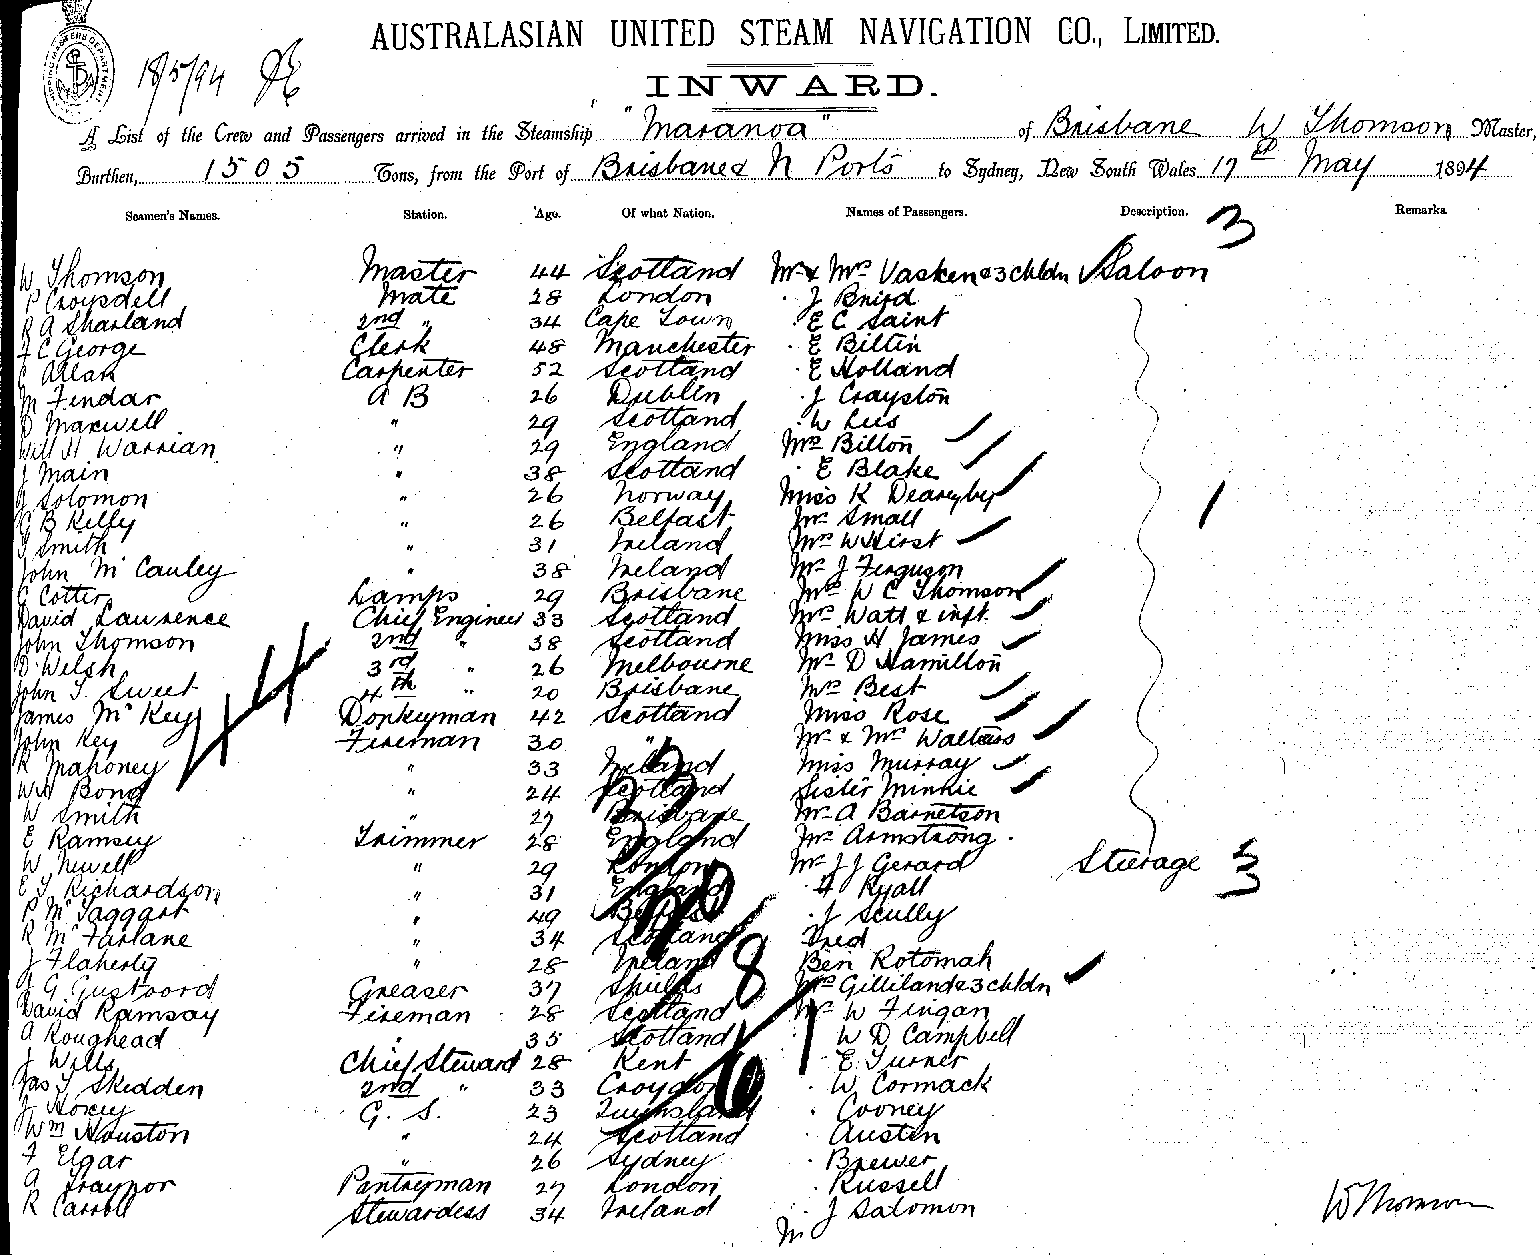 SHIPPING MASTERS DEPARTMENT
18/5/94
AUSTRALASIAN UNITED STEAM NAVIGATION CO., LIMITED.
INWARD.
A List of the Crew and Passengers arrived in the Steamship "Maranoa" of Brisbane W Thomson Master,
Burthen, 1505 Tons, from the Port of Brisbane & N Ports to Sydney, New South Wales 17th May 1894
Seamen's Names. Station. Age. Of what Nation. Names of Passengers. Description. Remarks
3
W Thomson Master 44 Scotland Mr & Mrs Vasken & 3 chldn Saloon
P Croysdell Mate 28 London J Baird
R A Sharland 2nd " 34 Cape Town E C Saint
F C George Clerk 48 Manchester E Biltin
Allan Carpenter 52 Scotland E Holland
M Fendar A B 26 Dublin J Crayston
D Maxwell " 29 Scotland W Lees
Will H Warrian " 29 England Mrs Billon
J Main " 38 Scotland E Blake
J Solomon " 26 Norway Miss K
G B Kelly " 26 Belfast Mr Small 1
J Smith " 31 Ireland Mrs W Hirst
John McCauley " 38 Ireland Mr J Ferguson
C Cotter Lamps 29 Brisbane Mrs W C Thomson
David Lawrence Chief Engineer 33 Scotland Mrs Watt & inft.
John Thomson 2nd " 38 Scotland Miss H James
D Welsh 3rd " 26 Melbourne Mr D Hamilton
John T Sweet 4th " 20 Brisbane Mrs Best
James McKey Donkeyman 42 Scotland Miss Rose
John Key Fireman 30 " Mr & Mrs Walters
R Mahoney " 33 Ireland Miss Murray
Wm Bond " 24 Scotland Sister Minnie
W Smith " 27 Brisbane Mr A Barnetson
E Ramsey Trimmer 28 England Mr Armstrong.
W Newell " 29 London Mr J J Gerard Steerage
E T Richardson " 31 England F Ryall
P McTaggart " 49 Belfast J Scully
R McFarlane " 34 Scotland Fred
J Flaherty " 28 Ireland Ben Rotomah
J G Gustoord Greaser 37 Shields Mrs Gilliland & 3 chldn
David Ramsay Fireman 28 Scotland Mr W Fingan
A Roughead " 35 Scotland W D Campbell
J Wills Chief Steward 28 Kent E Turner
Jas T Skedden 2nd " 33 Croydon W Cormack
J Hovey G. S. 23 Queensland Cooney
Wm Houston " 24 Scotland Austen
F Elgar " 26 Sydney Brewer
A Traynor Pantryman 27 London Russell
R Carroll Stewardess 34 Ireland J Salomon
W Thomson